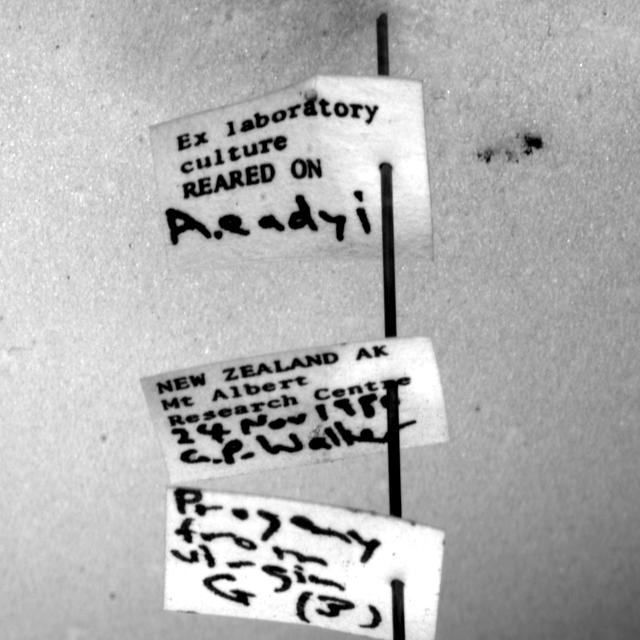 Ex laboratory
culture
REARED ON
A.eadyi
NEW ZEALAND AK
Mt Albert
Research Centre
24 Nov
G.P. Walker
G-Sim